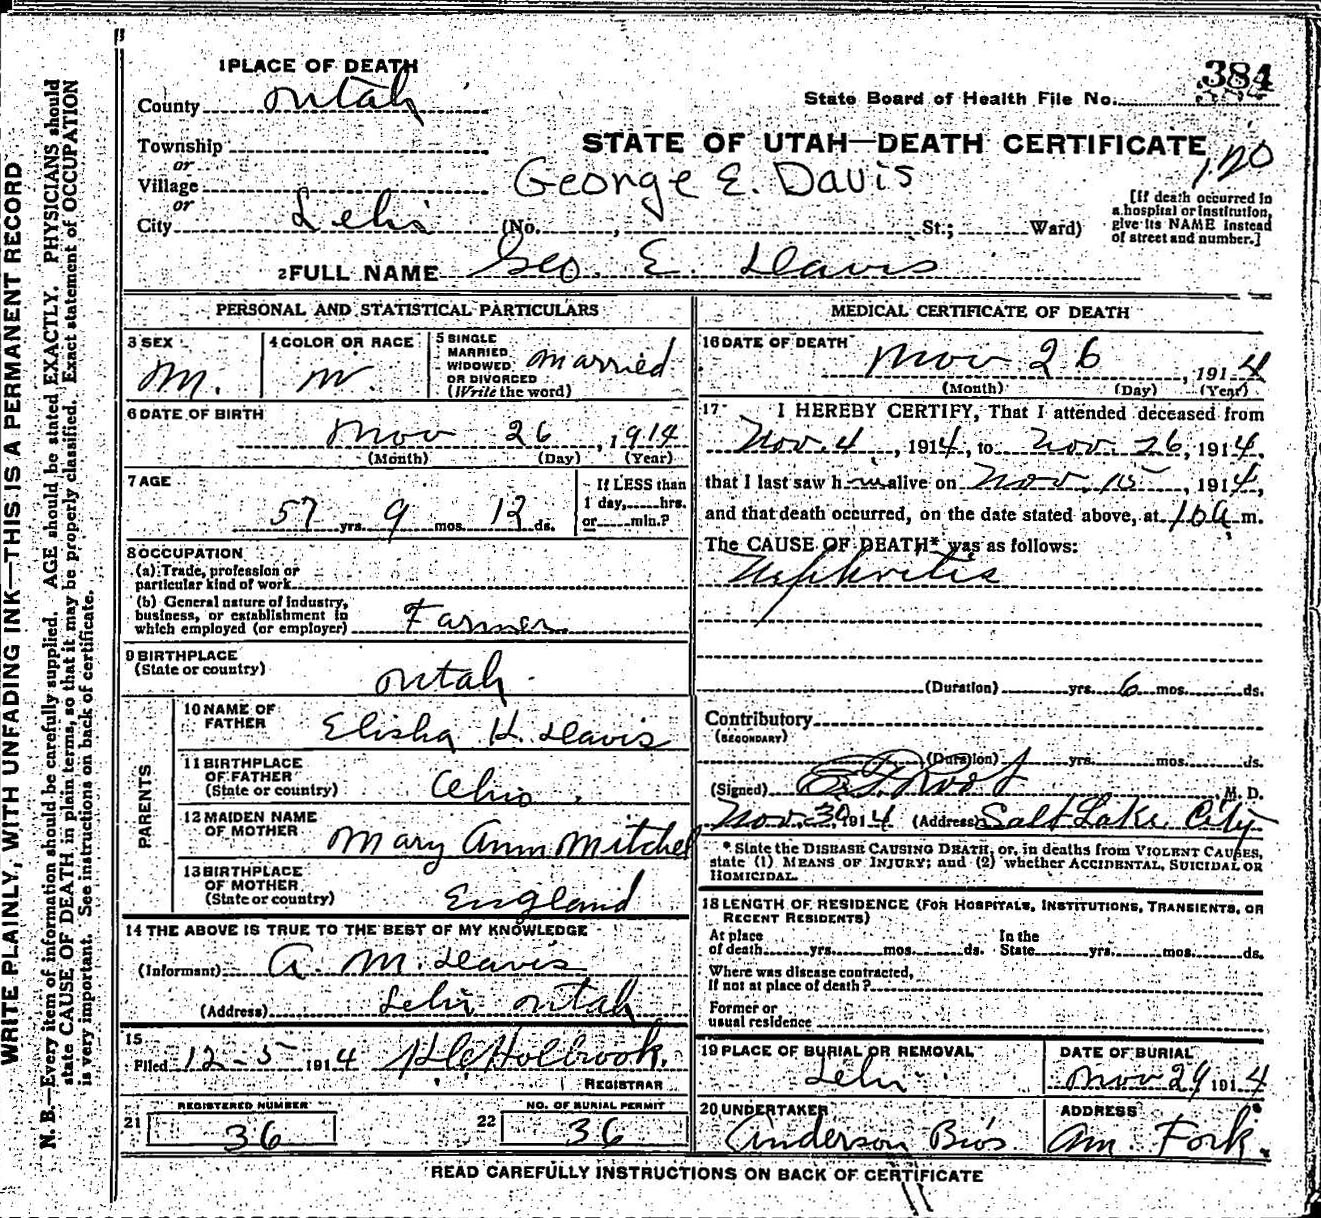 384
1 PLACE OF DEATH
County Utah
State Board of Health File No.
Township
STATE OF UTAH—DEATH CERTIFICATE
120
or
Village
George E. Davis
or
City Lehi (No. , St.; Ward)
[If death occurred in
a hospital or institution,
give its NAME instead
of street and number.]
2 FULL NAME Geo. E. Davis
PERSONAL AND STATISTICAL PARTICULARS
3 SEX
M.
4 COLOR OR RACE
W.
5 SINGLE
MARRIED
WIDOWED
OR DIVORCED
(Write the word)
Married
6 DATE OF BIRTH
Nov 26, 1914
(Month) (Day) (Year)
7 AGE
57 yrs. 9 mos. 12 ds.
If LESS than
1 day, hrs.
or min.?
8 OCCUPATION
(a) Trade, profession or
particular kind of work
(b) General nature of industry,
business, or establishment in
which employed (or employer) Farmer
9 BIRTHPLACE
(State or country)
Utah
PARENTS
10 NAME OF
FATHER
Elisha H. Davis
11 BIRTHPLACE
OF FATHER
(State or country)
Ohio
12 MAIDEN NAME
OF MOTHER
Mary Ann Mitchel
13 BIRTHPLACE
OF MOTHER
(State or country)
England
14 THE ABOVE IS TRUE TO THE BEST OF MY KNOWLEDGE
(Informant) A. M. Davis
(Address) Lehi Utah
15
Filed 12-5 1914 Holbrook.
REGISTRAR
REGISTERED NUMBER
21 36
NO. OF BURIAL PERMIT
22 36
MEDICAL CERTIFICATE OF DEATH
16 DATE OF DEATH
Nov 26, 1914
(Month) (Day) (Year)
17 I HEREBY CERTIFY, That I attended deceased from
Nov. 4, 1914, to Nov. 26, 1914,
that I last saw him alive on Nov. 15, 1914,
and that death occurred, on the date stated above, at 10 a m.
The CAUSE OF DEATH* was as follows:
Nephritis
(Duration) yrs. 6 mos. ds.
Contributory
(SECONDARY)
(Duration) yrs. mos. ds.
(Signed) M. D.
Nov. 30 1914 (Address) Salt Lake City
* State the DISEASE CAUSING DEATH, or, in deaths from VIOLENT CAUSES,
state (1) MEANS OF INJURY; and (2) whether ACCIDENTAL, SUICIDAL OR
HOMICIDAL.
18 LENGTH OF RESIDENCE (FOR HOSPITALS, INSTITUTIONS, TRANSIENTS, OR
RECENT RESIDENTS)
At place
of death yrs. mos. ds.
In the
State yrs. mos. ds.
Where was disease contracted,
If not at place of death?
Former or
usual residence
19 PLACE OF BURIAL OR REMOVAL
Lehi
DATE OF BURIAL
Nov 29 1914
20 UNDERTAKER
Anderson Bros
ADDRESS
Am. Fork.
READ CAREFULLY INSTRUCTIONS ON BACK OF CERTIFICATE
WRITE PLAINLY, WITH UNFADING INK—THIS IS A PERMANENT RECORD
N. B.—Every item of information should be carefully supplied. AGE should be stated EXACTLY. PHYSICIANS should
state CAUSE OF DEATH in plain terms, so that it may be properly classified. Exact statement of OCCUPATION
is very important. See instructions on back of certificate.